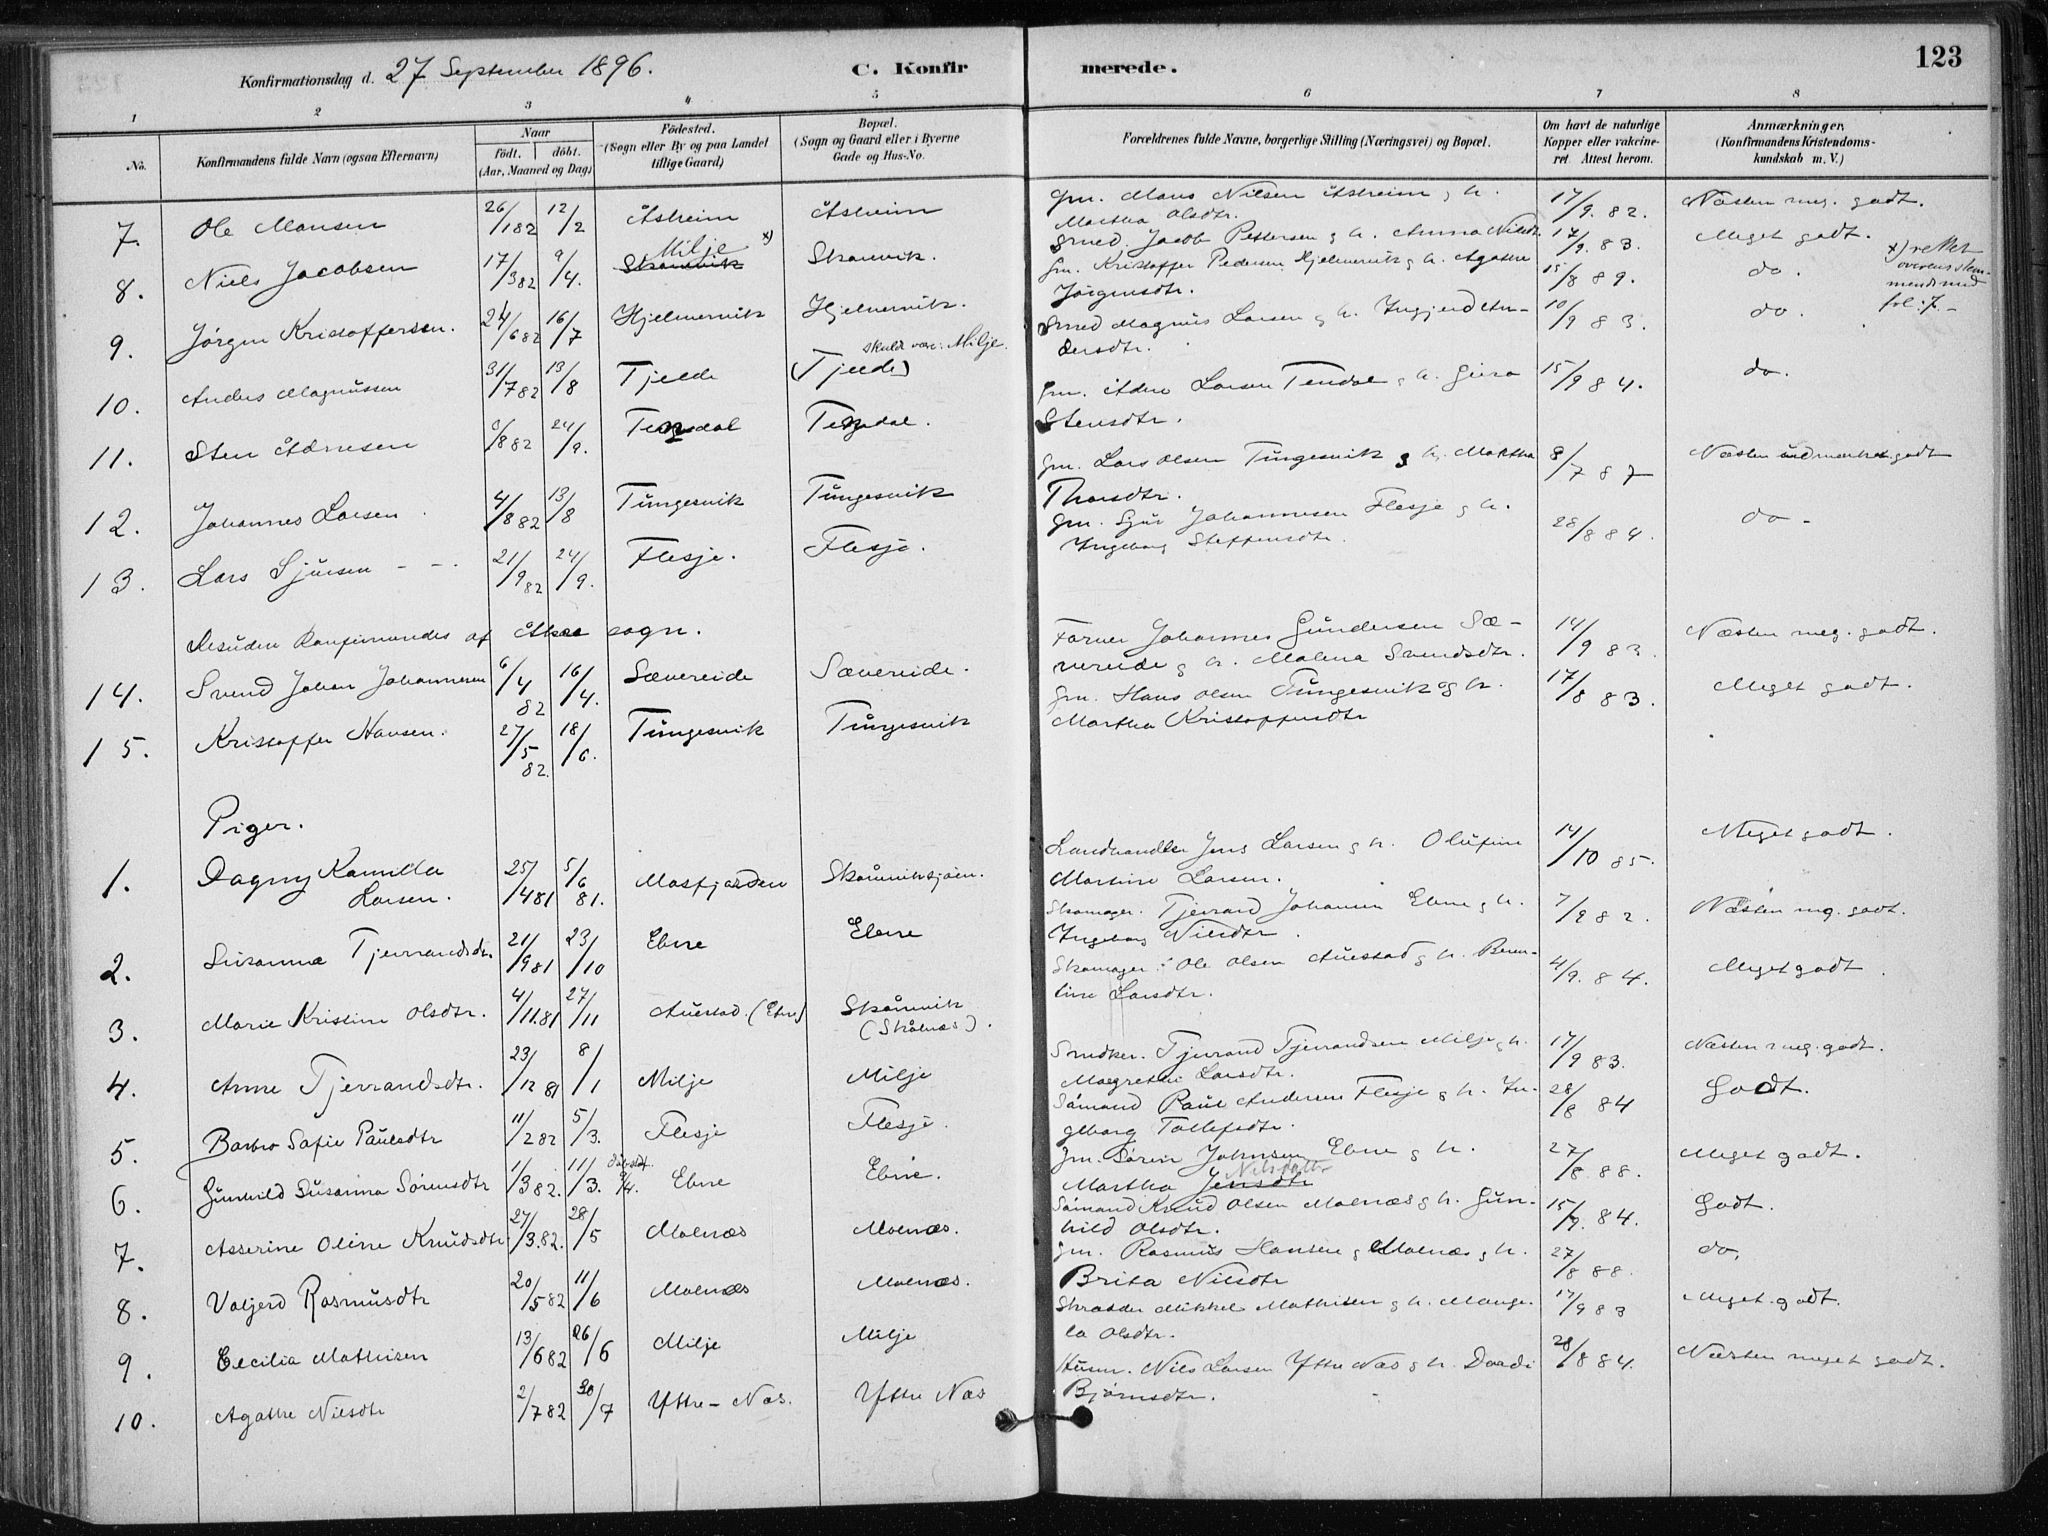 123
Konfirmationsdag d. 27 September 1896. C. Konfirmerede.
1 2 3 4 5 6 7 8
No. Konfirmandens fulde Navn (ogsaa Efternavn) Naar födt. döbt. (Aar, Maaned og Dag) Födested. (Sogn eller By og paa Landet tillige Gaard) Bopæl. (Sogn og Gaard eller i Byerne Gade og Hus-No. Forældrenes fulde Navne, borgerlige Stilling (Næringsvei) og Bopæl. Om havt de naturlige Kopper eller vakcineret. Attest herom. Anmærkninger. (Konfirmandens Kristendomskundskab m. V.)
7. Ole Monsen 26/1 82 12/2 Åsheim Åsheim Gm. Mons Nilsen Åsheim g h. 17/9. 82. Næsten meg. godt.
Martha Olsdtr.
8. Niels Jacobsen 17/3 82 9/4. Skaanvik Milje x) Skaanvik. Smed. Jacob Pettersen g h. Anna Nilsdt. 17/9. 83. Meget godt. x) rettet overensstemmende med fol: 7. -
9. Jørgen Kristoffersen. 24/6 82 16/7 Hjelmervik Hjelmervik. Gm. Kristoffer Pedersen Hjelmervik g h. Agathe 15/8 89. do.
Jørgensdtr.
10. Anders Magnussen 31/7 82 13/8 Tjelde (Tjelde) skulde være: Milje. Smed Magnus Larsen g h. Ingjerd An- 10/9 83. do.
dersdtr.
11. Sten Adnesen /8 82 24/9. Tendal Tendal. Gm. Adne Larsen Tendal g h. Guro 15/9 84. do.
Stensdtr.
12. Johannes Larsen. 4/8 82 13/8 Tungesvik Tungesvik Gm. Lars Olsen Tungesvik g h. Martha 8/7 87 Næsten udmerket godt
Thorsdtr.
13. Lars Sjursen - - . 21/9 82 24/9. Flesje. Flesje. Gm. Sjur Johannesen Flesje g h. 28/8 84. do -
Ingeborg Steffensdtr.
Desuden Konfirmandes af Åkre sogn.
14. Svend Johan Johannesen 6/4 82 16/4. Sævereide Sævereide. Farver Johannes Gundersen Sæ- 14/9 83. Næsten meg. godt.
vereide g h. Malena Svendsdtr.
15. Kristoffer Hansen. 27/5 82. 18/6. Tungesvik Tungesvik Gm. Hans Olsen Tungesvik og h. 17/8 83. Meget godt.
Martha Kristoffersdtr
Piger.
1. Dagny Kamilla Larsen. 25/4 81 5/6 81. Masfjorden Skaanviksjøen. Landhandler Jens Larsen g h. Olufine 14/10 85. Meget godt.
Martine Larsen.
2. Susanna Tjerrandsdtr. 21/9 81 23/10 Ebne Ebne Skomager. Tjerrand Johannesen Ebne g h. 7/9 82. Næsten meg. godt.
Ingeborg Nilsdtr.
3. Marie Kristine Olsdtr. 4/11. 81 27/11 Auestad. (Etne) Skånvik (Skålnæs). Skomager. Ole Olsen Auestad g h. Beren- 4/9. 84. Meget godt.
tine Larsdtr.
4. Anne Tjerrandsdtr. 23/12 81 8/1 Milje Milje Snedker. Tjerrand Tjerrandsen Milje g h. 17/9 83. Næsten meg. godt.
Margrethe Larsdtr.
5. Barbro Sofie Paulsdtr 11/2 82 5/3. Flesje Flesje. Sømand Paul Andersen Flesje g h. In- 28/8 84 Godt.
geborg Tollefsdtr.
6. Gunhild Susanna Sørensdtr 1/3 82. 11/3. 9/4. Ebne Ebne. Gm. Søren Johnsen Ebne g h. 27/8 88. Meget godt.
Martha Jensdtr Nilsdatter
7. Asserine Oline Knudsdtr 27/3. 82. 28/5 Molnæs Molnæs. Sømand Knud Olsen Molnæs g h. Gun- 15/9. 84. Godt.
hild Olsdtr.
8. Valjerd Rasmusdtr 20/5 82 11/6 Molnæs Molnæs. Gm. Rasmus Hansen g Molnæs g h. 27/8 88. do.
Brita Nilsdtr
9. Cecilia Mathisen 13/6 82 26/6 Milje Milje Skrædder Mikkel Mathisen g h. Mange- 17/9 83 Meget godt.
la Olsdtr.
10. Agathe Nilsdtr 2/7 82 30/7 Yttre-Næs. Yttre Næs Husm. Nils Larsen Yttre Næs g h. Dordi 28/8 84. Næsten meget godt.
Bjørnsdtr.